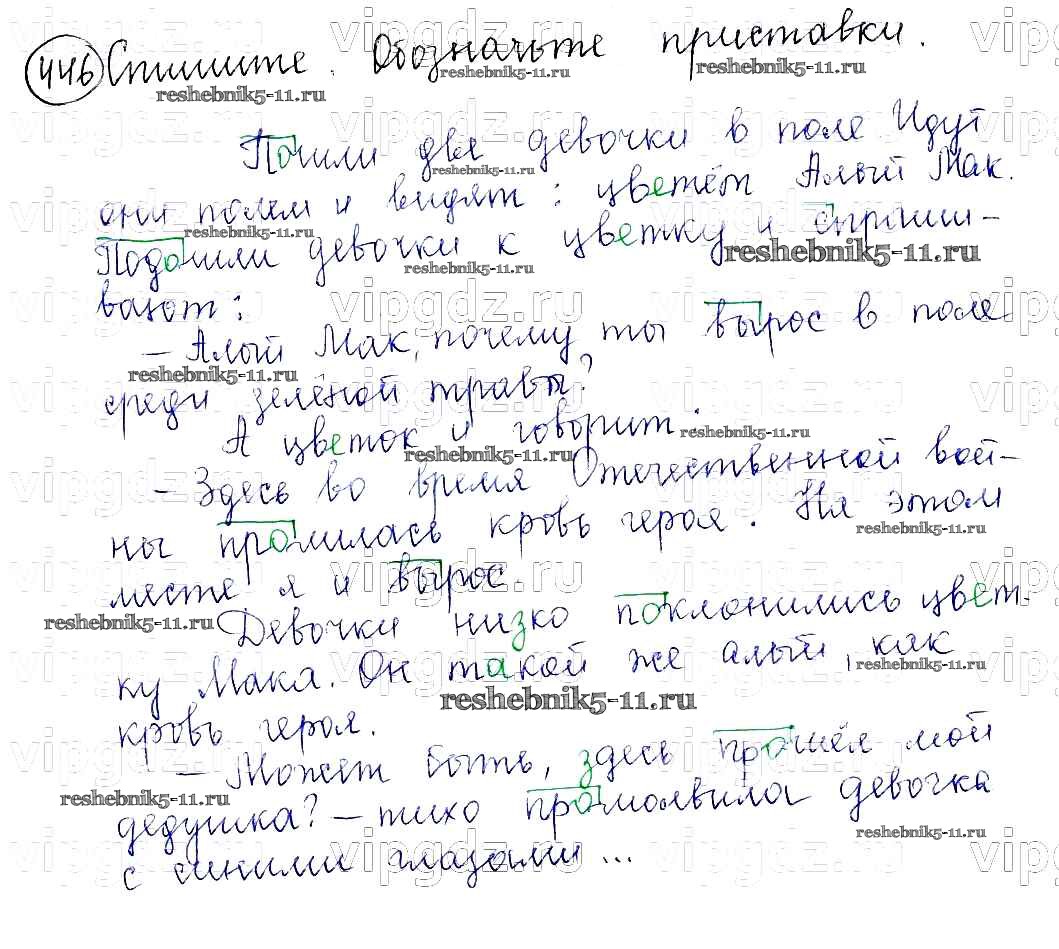 446 Спишите. Обозначьте приставки.
Пошли две девочки в поле Идут
они полем и видят: цветёт Алый Мак.
Подошли девочки к цветку и спраши-
вают:
– Алый Мак, почему ты вырос в поле
среди зелёной травы?
А цветок и говорит:
– Здесь во время Отечественной вой-
ны пролилась кровь героя. На этом
месте я и вырос.
Девочки низко поклонились цвет-
ку Мака. Он такой же алый, как
кровь героя.
– Может быть, здесь прошёл мой
дедушка? – тихо промолвила девочка
с синими глазами...
vipgdz.ru
reshebnik5-11.ru